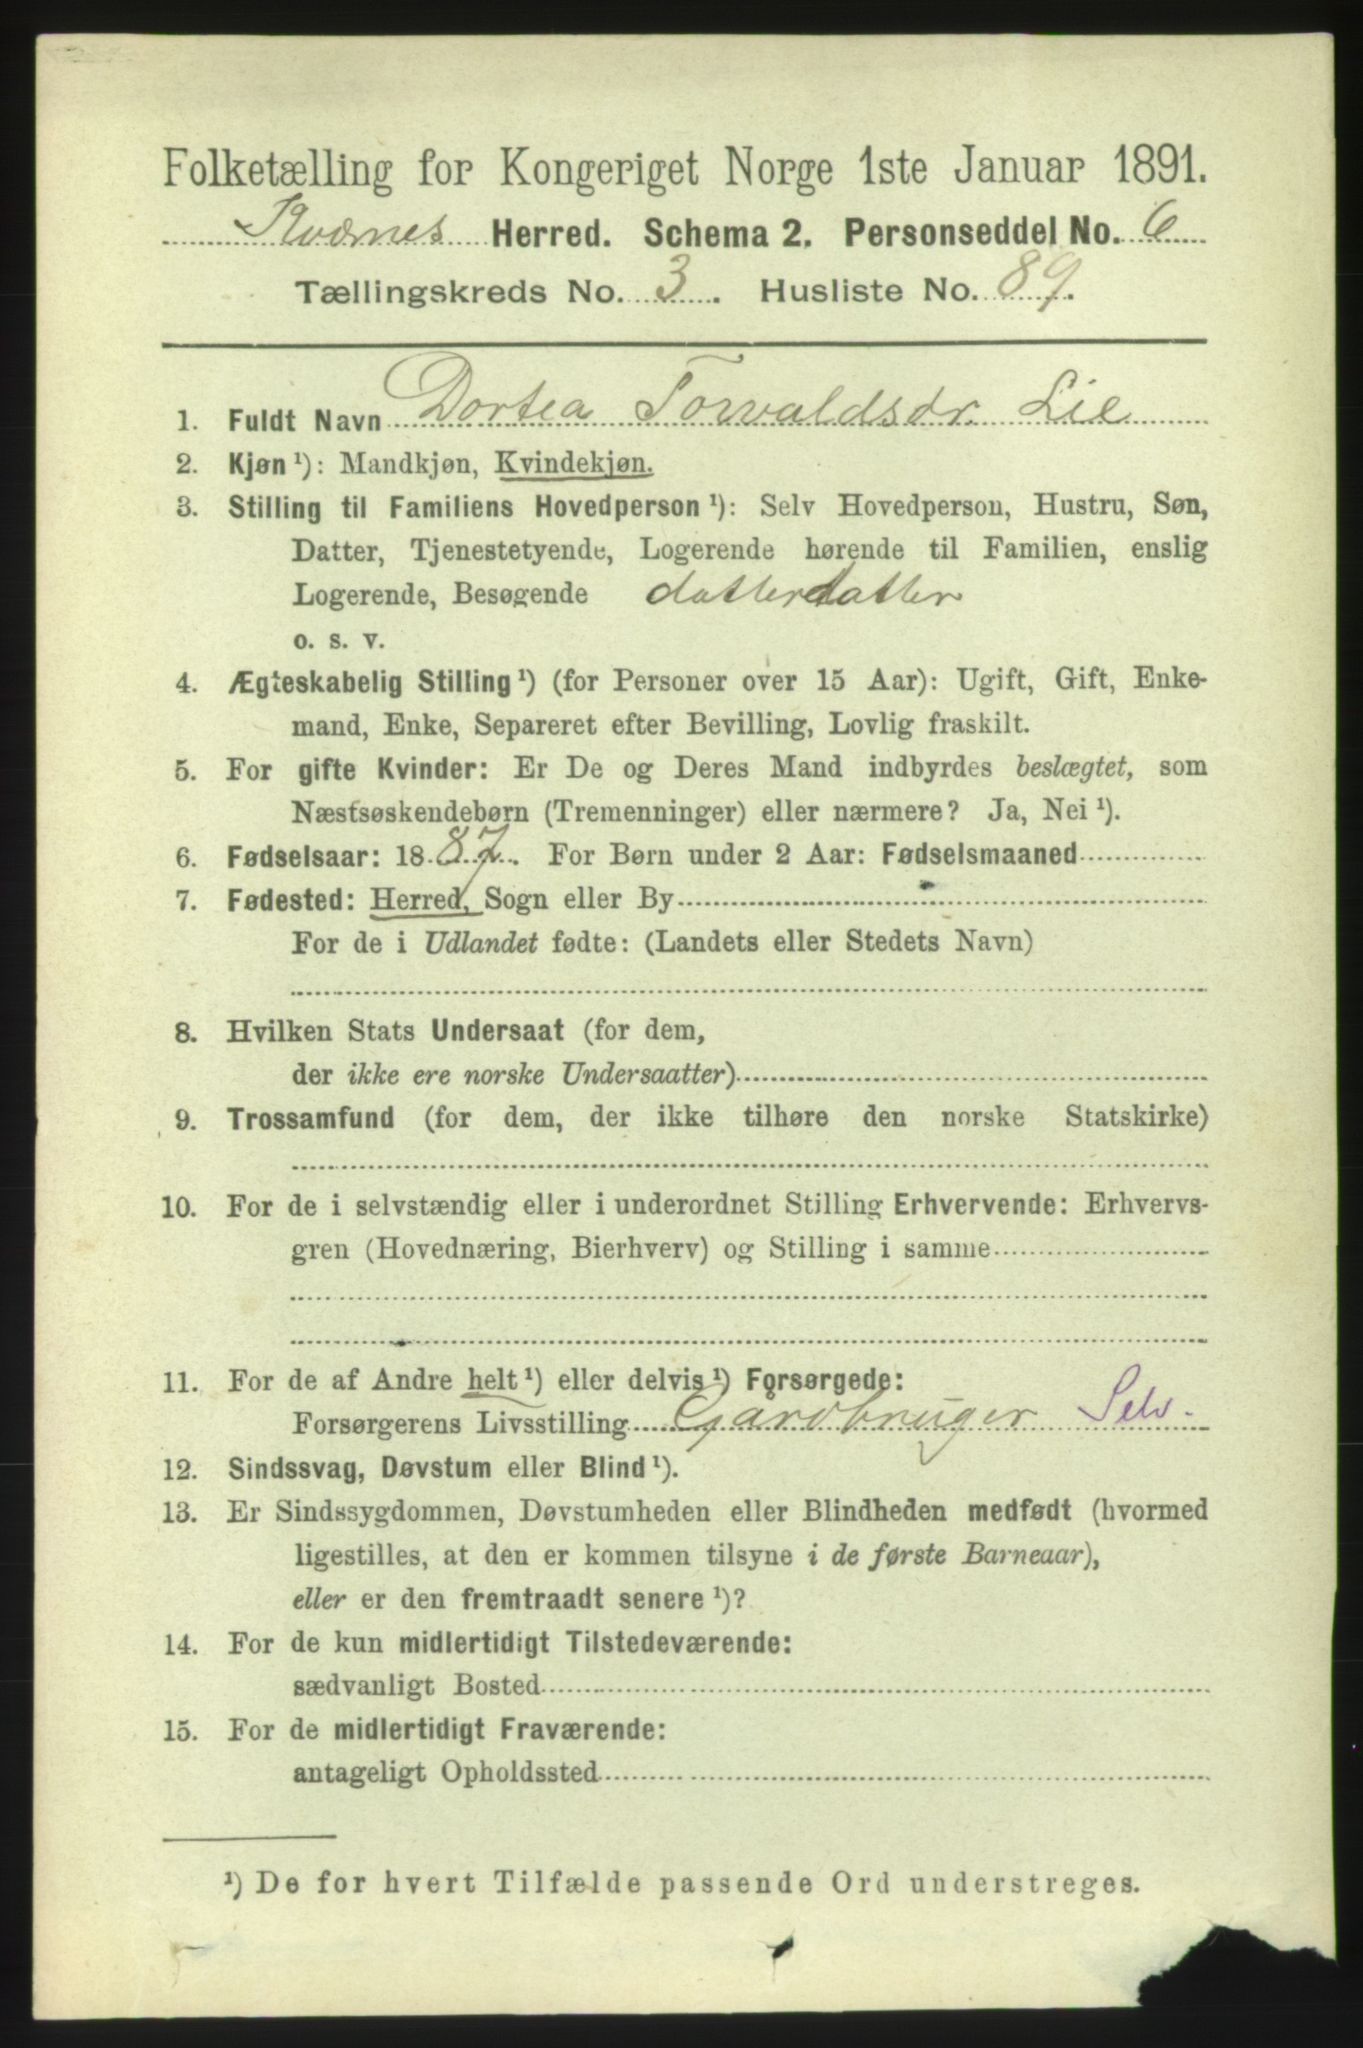 Folketælling for Kongeriget Norge 1ste Januar 1891.
Kværnes Herred. Schema 2. Personseddel No. 6
Tællingskreds No. 3. Husliste No. 89.
1. Fuldt Navn Dortea Torvaldsdr. Lie
2. Kjøn ¹): Mandkjøn, Kvindekjøn.
3. Stilling til Familiens Hovedperson ¹): Selv Hovedperson, Hustru, Søn,
Datter, Tjenestetyende, Logerende hørende til Familien, enslig
Logerende, Besøgende datterdatter
o. s. v.
4. Ægteskabelig Stilling ¹) (for Personer over 15 Aar): Ugift, Gift, Enke-
mand, Enke, Separeret efter Bevilling, Lovlig fraskilt.
5. For gifte Kvinder: Er De og Deres Mand indbyrdes beslægtet, som
Næstsøskendebørn (Tremenninger) eller nærmere? Ja, Nei ¹).
6. Fødselsaar: 1887. For Børn under 2 Aar: Fødselsmaaned
7. Fødested: Herred, Sogn eller By
For de i Udlandet fødte: (Landets eller Stedets Navn)
8. Hvilken Stats Undersaat (for dem,
der ikke ere norske Undersaatter)
9. Trossamfund (for dem, der ikke tilhøre den norske Statskirke)
10. For de i selvstændig eller i underordnet Stilling Erhvervende: Erhvervs-
gren (Hovednæring, Bierhverv) og Stilling i samme
11. For de af Andre helt ¹) eller delvis ¹) Forsørgede:
Forsørgerens Livsstilling Gårdbruger Selv.
12. Sindssvag, Døvstum eller Blind ¹).
13. Er Sindssygdommen, Døvstumheden eller Blindheden medfødt (hvormed
ligestilles, at den er kommen tilsyne i de første Barneaar),
eller er den fremtraadt senere ¹)?
14. For de kun midlertidigt Tilstedeværende:
sædvanligt Bosted
15. For de midlertidigt Fraværende:
antageligt Opholdssted
¹) De for hvert Tilfælde passende Ord understreges.